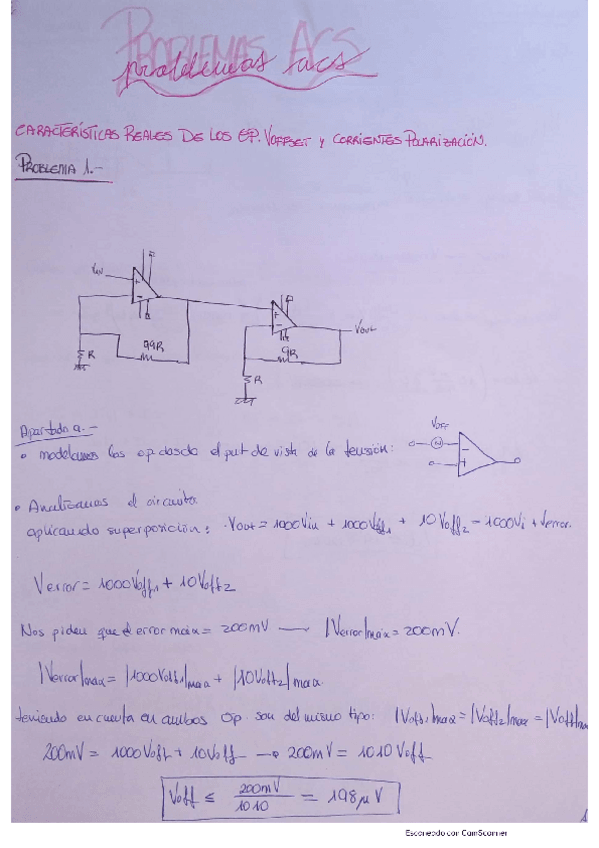 PROBLEMAS ACS
problemas acs
CARACTERÍSTICAS REALES DE LOS OP. VOFFSET y CORRIENTES POLARIZACIÓN.
PROBLEMA 1.-
VIN
+
-
99R
R
+
-
Vout
9R
R
Apartado a.-
VOFF
• modelamos los op desde el punt de vista de la tensión:
-
+
• Analizamos el circuito
aplicando superposición: Vout = 1000Vin + 1000Voff1 + 10Voff2 = 1000Vi + Verror.
Verror = 1000Voff1 + 10Voff2
Nos piden que el error max = 200mV — |Verror|max = 200mV.
|Verror|max = |1000Voff1|max + |10Voff2|max.
teniendo en cuenta en ambos Op. son del mismo tipo: |Voff1|max = |Voff2|max = |Voff|ma
200mV = 1000Voff + 10Voff → 200mV = 1010 Voff
Voff ≤ 200mV / 1010 = 198μV
1
Escaneado con CamScanner